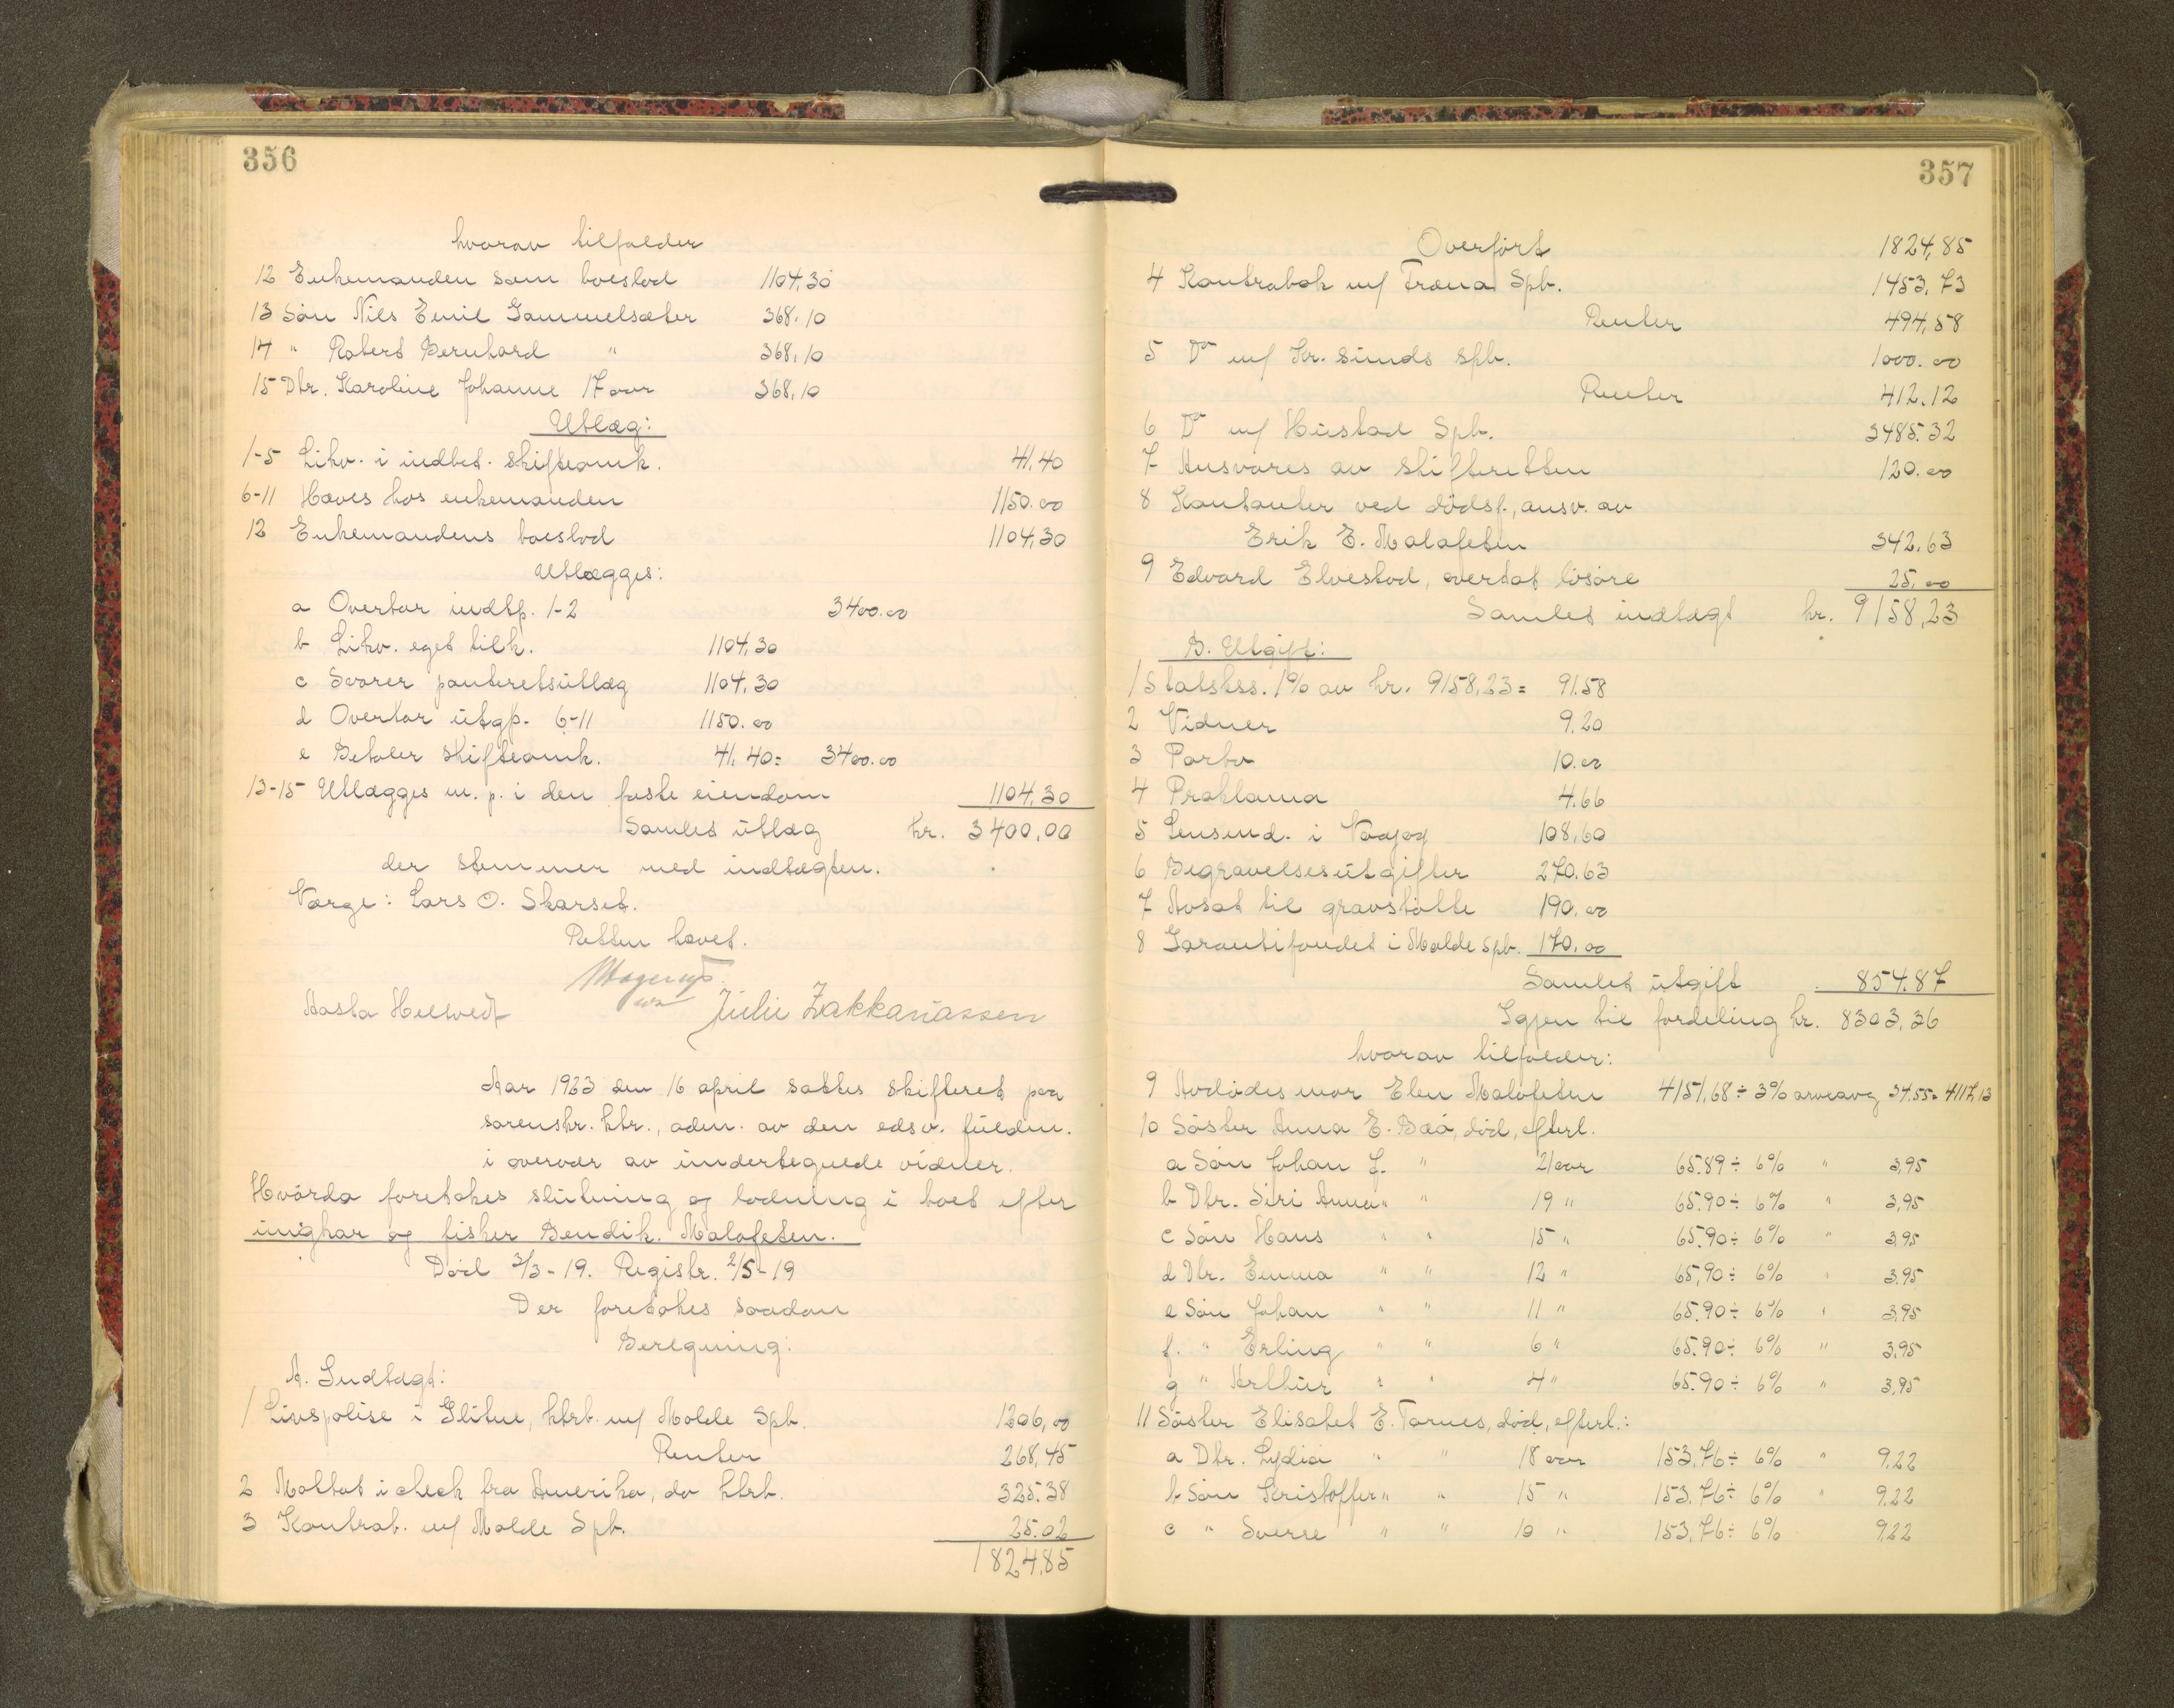 356
hvorav tilfalder
12 Enkemanden som boeslod 1104,30
13 Søn Nils Emil Gammelsæter 368.10
14 " Robert Bernhard " 368,10
15 Dtr. Karoline Johanne 17 aar 368,10
Utlæg:
1-5 Likv. i indbet. skifteomk. 41.40
6-11 Hæves hos enkemanden 1150.00
12 Enkemandens boeslod 1104,30
Utlægges:
a Overtar indtp. 1-2 3400.00
b Likv. eget tilk. 1104,30
c Svarer panteretsutlæg 1104,30
d Overtar utgp. 6-11 1150.00
e Betaler skifteomk. 41.40 = 3400.00
13-15 Utlægges m. p. i den faste eiendom 1104,30
Samlet utlæg kr. 3400,00
der stemmer med indtægten.
Værge: Lars O. Skarset.
Retten hævet.
Aasta Helseth Julie Zakkariassen
Aar 1923 den 16 april sattes skifteret paa
sorenskr. ktr., adm. av den edsv. fuldm.
i overvær av undertegnede vidner.
Hvorda foretokes slutning og lodning i boet efter
ungkar og fisker Bendik Malofeten.
Død 3/3-19. Registr. 2/5-19
Der foretokes saadan
Beregning:
A. Indtægt:
1 Livspolise i Glitne, ktrb. m/ Molde Spb. 1206,00
Renter 268,45
2 Mottat i check fra Amerika, do ktrb. 325.38
3 Kontrab. m/ Molde Spb. 25.02
1824.85
357
Overført 1824,85
4 Kontrabok m/ Fræna Spb. 1453.73
Renter 494,58
5 Do m/ Kr.sunds Spb. 1000.00
Renter 412.12
6 Do m/ Hustad Spb. 3485.32
7 Ansvares av skifteretten 120.00
8 Kontanter ved dødsf., ansv. av
Erik E. Malofeten 342.63
9 Edvard Elvestad, overtat løsøre 25.00
Samlet indtægt kr. 9158,23
B. Utgift:
1 Statskss. 1% av kr. 9158,23 = 91.58
2 Vidner 9.20
3 Porto 10.00
4 Proklama 4.66
5 Lensmd. i Vaagøy 108.60
6 Begravelsesutgifter 270.63
7 Avsat til gravstøtte 190.00
8 Garantifondet i Molde Spb. 170.00
Samlet utgift 854.87
Igjen til fordeling kr. 8303,36
hvorav tilfalder:
9 Avdødes mor Elen Malofeten 4151,68 ÷ 3% arveavg 34.55 = 4117,13
10 Søster Anna E. Bøø, død, efterl.
a Søn Johan J. " 21 aar 65.89 ÷ 6% " 3,95
b Dtr. Siri Anna " " 19 " 65.90 ÷ 6% " 3,95
c Søn Hans " " 15 " 65.90 ÷ 6% " 3.95
d Dtr. Emma " " 12 " 65,90 ÷ 6% " 3.95
e Søn Johan " " 11 " 65.90 ÷ 6% " 3.95
f. " Erling " " 6 " 65.90 ÷ 6% " 3.95
g " Arthur " " 4 " 65.90 ÷ 6% " 3,95
11 Søster Elisabet E. Tornes, død, efterl.:
a Dtr. Lydia " " 18 aar 153.76 ÷ 6% " 9.22
b Søn Kristoffer " " 15 " 153.76 ÷ 6% " 9.22
c " Sverre " " 10 " 153.76 ÷ 6% 9.22